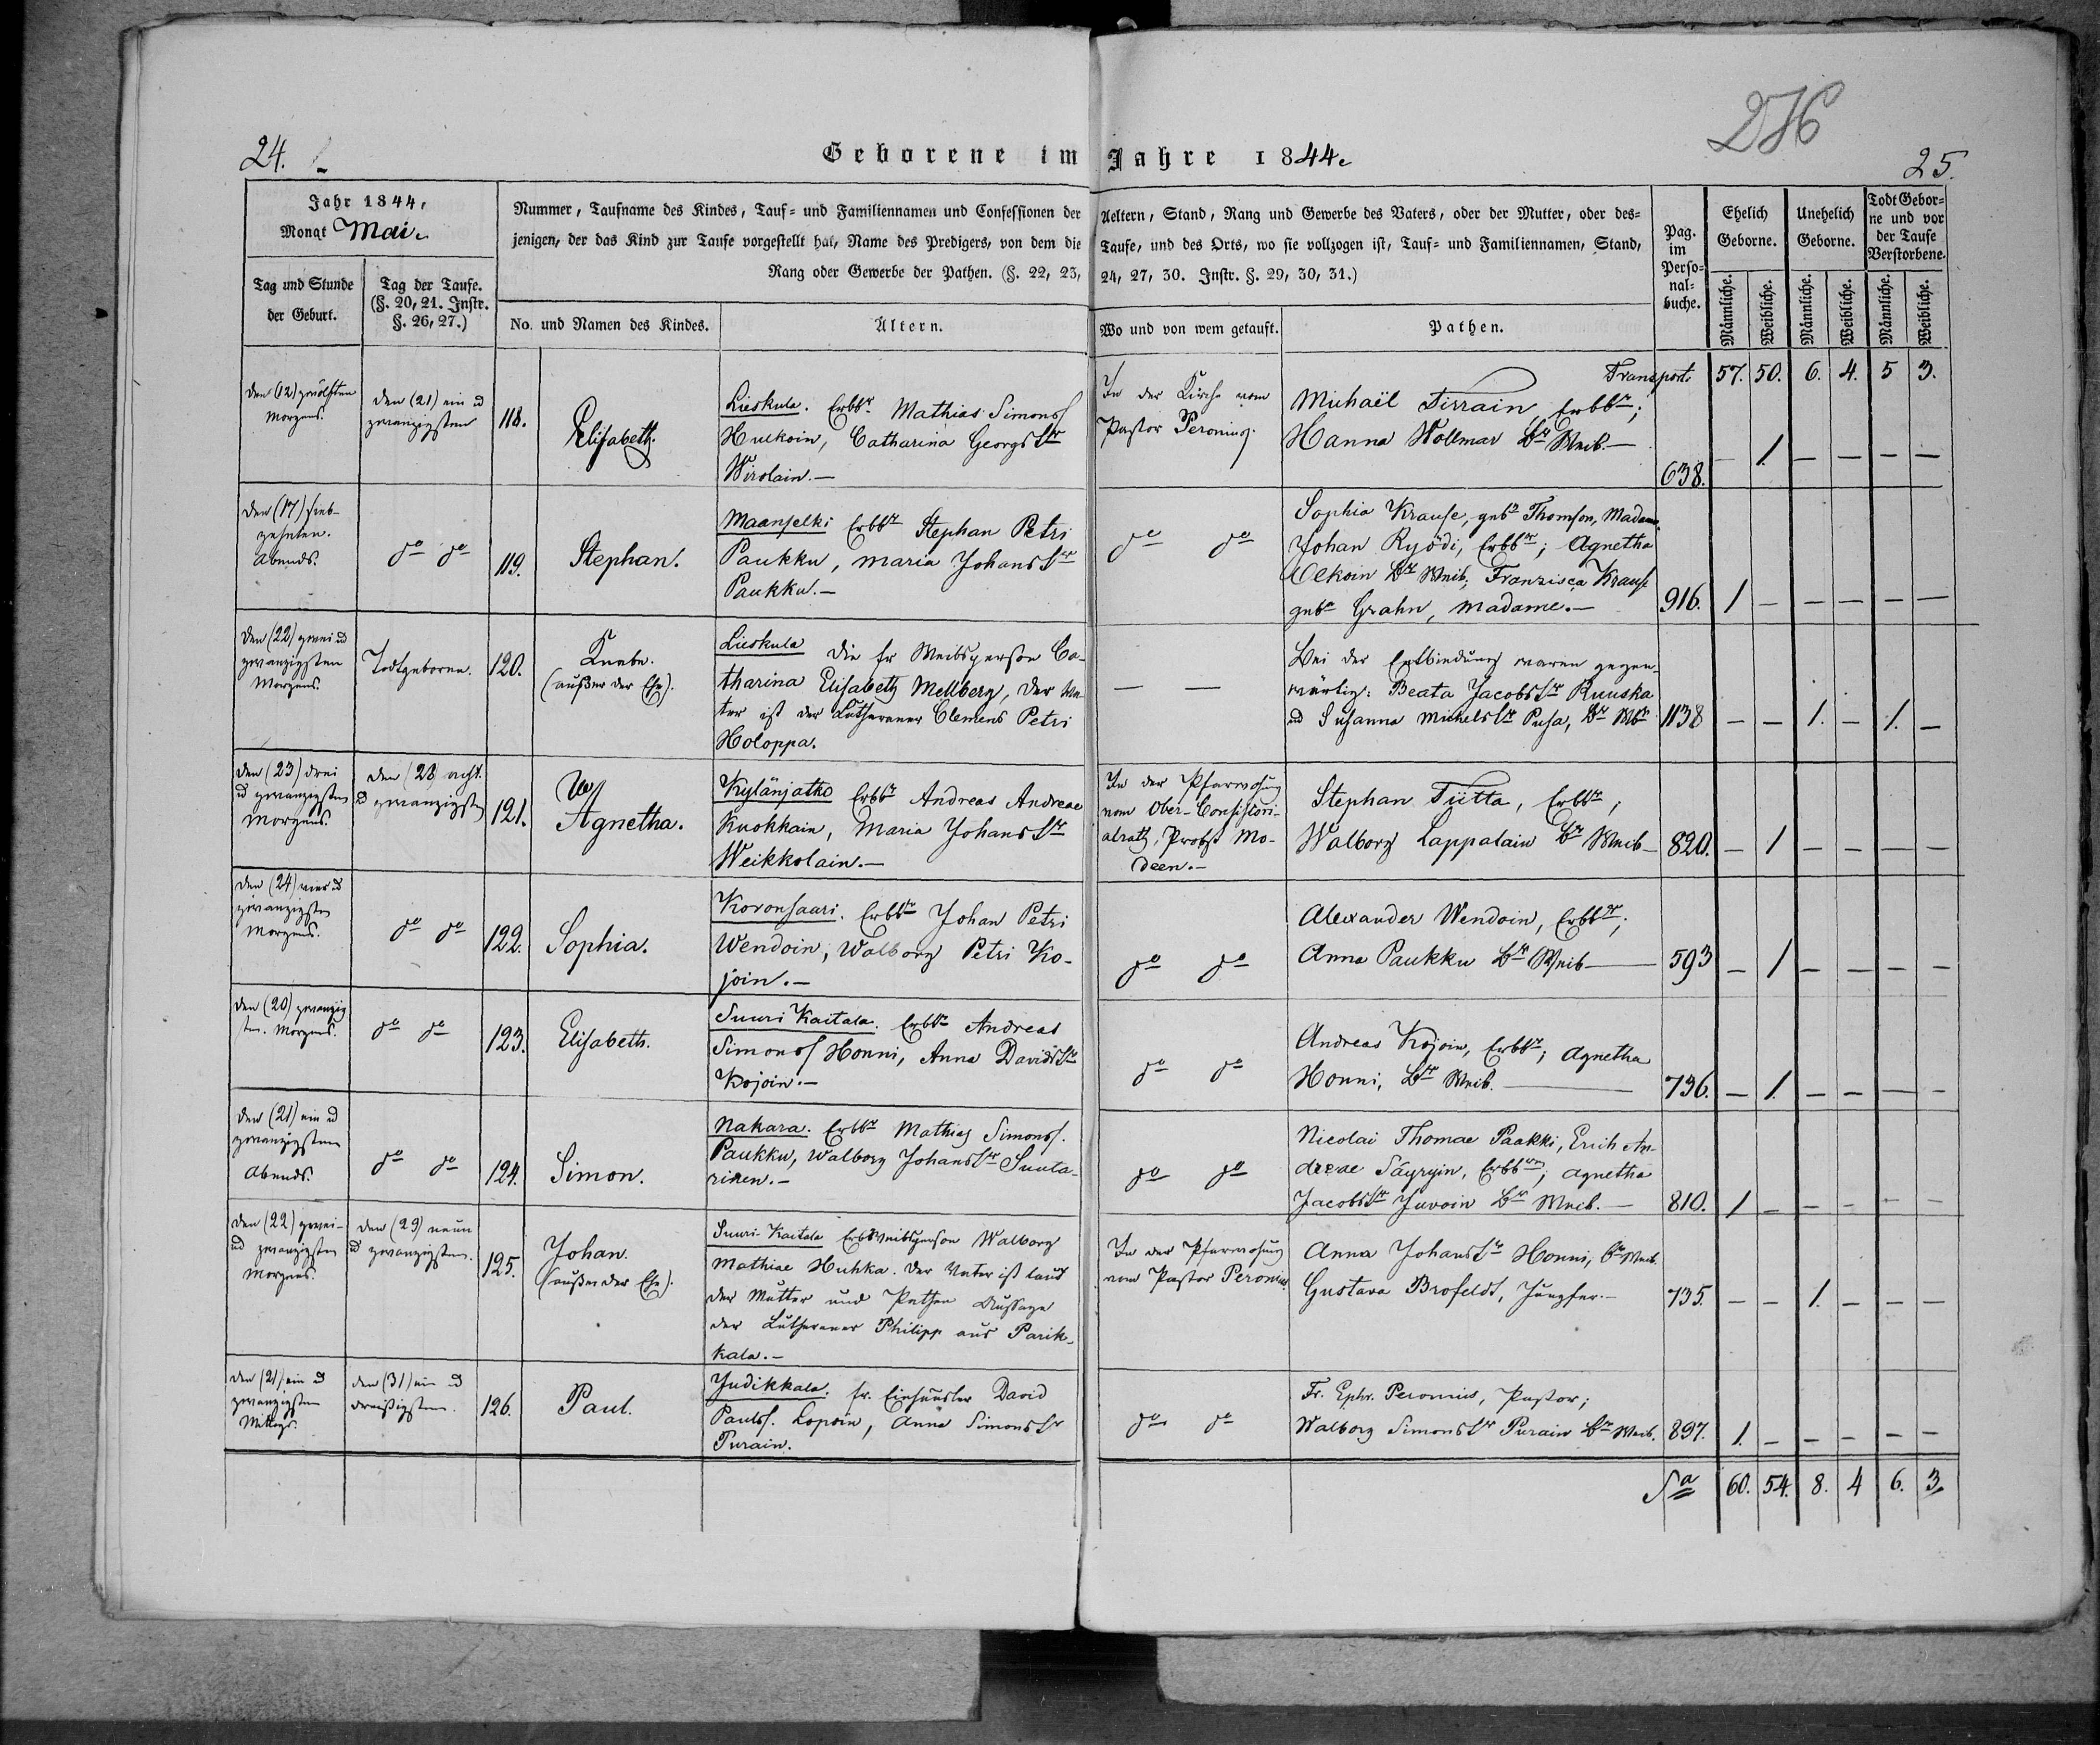 24.
Geborene im Jahre 1844.
25.
Jahr 1844,
Monat Mai.
Tag und Stunde
der Geburt.
Tag der Taufe.
(§. 20, 21. Instr.
§. 26, 27.)
Nummer, Taufname des Kindes, Tauf- und Familiennamen und Confessionen der Aeltern, Stand, Rang und Gewerbe des Vaters, oder der Mutter, oder des-
jenigen, der das Kind zur Taufe vorgestellt hat, Name des Predigers, von dem die Taufe, und des Orts, wo sie vollzogen ist, Tauf- und Familiennamen, Stand,
Rang oder Gewerbe der Pathen. (§. 22, 23, 24, 27, 30. Instr. §. 29, 30, 31.)
No. und Namen des Kindes.
Ältern.
Wo und von wem getauft.
Pathen.
Pag.
im
Perso-
nal-
buche.
Ehelich
Geborne.
Unehelich
Geborne.
Todt Gebor-
ne und vor
der Taufe
Verstorbene.
Männliche.
Weibliche.
Männliche.
Weibliche.
Männliche.
Weibliche.
Transport. 57. 50. 6. 4. 5 3.
den (12) zwölften
Morgens.
den (21) ein ud
zwanzigsten
118.
Elisabeth.
Lieskula. Erbbr Mathias Simonss
Hulkoin, Catharina Georgstr
Wirolain.—
In der Kirche vom
Pastor Peronius.
Michaël Tirrain, Erbbr;
Hanna Wollmar Br Weib.—
638. — 1. — — — —
den (17) sieb-
zehnten.
Abends.
do do
119.
Stephan.
Maanselki Erbbr Stephan Petri
Paukku, Maria Johanstr
Paukku.—
do do
Sophia Krause, gebr Thomson, Madame.
Johan Ryödi, Erbbr; Agnetha
Ulkoin Br Weib; Franzisca Krause
gebr Grahn, Madame.—
916. 1 — — — — —
den (22) zwei ud
zwanzigsten
Morgens.
Todtgeboren.
120.
Knabe.
(außer der Ehe).
Lieskula die fr Weibsperson Ca-
tharina Elisabeth Mellberg, der Va-
ter ist der Lutheraner Clemens Petri
Holoppa.
— —
Bei der Entbindung waren gegen-
wärtig: Beata Jacobstr Ruuska
ud Susanna Michelstr Pusa, Br Wbr
1138 — — 1. — 1. —
den (23) drei
ud zwanzigsten
Morgens.
den (28) acht
ud zwanzigsten
121.
Agnetha.
Kylänjatko Erbbr Andreas Andreae
Kuokkain, Maria Johanstr
Weikkolain.—
In der Pfarrwohnung
vom Ober-Consistori-
alrath, Probst Mo-
deen.—
Stephan Tiitta, Erbbr;
Walborg Lappalain Br Weib—
820. — 1 — — — —
den (24) vier ud
zwanzigsten
Morgens.
do do
122.
Sophia.
Koronsaari. Erbbr Johan Petri
Wendoin, Walborg Petri Ko-
join.—
do do
Alexander Wendoin, Erbbr;
Anna Paukku Br Weib—
593 — 1 — — — —
den (20) zwanzig
sten. Morgens.
do do
123.
Elisabeth.
Suuri Kaitala. Erbbr Andreas
Simonss Honni, Anna Davidstr
Kojoin.—
do do
Andreas Kojoin, Erbbr; Agnetha
Honni, Br Weib.—
736. — 1. — — — —
den (21) ein ud
zwanzigsten
Abends.
do do
124.
Simon.
Nakara. Erbbr Mathias Simonss.
Paukku, Walborg Johanstr Suuta-
rinen.—
do do
Nicolai Thomae Paakki, Erich An-
dreae Säyryin, Erbbrn; Agnetha
Jacobstr Juvoin Br Weib.—
810. 1 — — — — —
den (22) zwei-
ud zwanzigsten
Morgens.
den (29) neun
ud zwanzigsten.
125.
Johan.
(außer der Ehe).
Suuri-Kaitala Erbweibsperson Walborg
Mathiae Huhka. Der Vater ist laut
der Mutter und Pathen Aussage
der Lutheraner Philipp aus Parik-
kala.—
In der Pfarrwohnung
vom Pastor Peronius.
Anna Johanstr Honni, Br Weib.
Gustava Brofeldt, Jungfer.—
735. — — 1. — — —
den (21) ein ud
zwanzigsten
Mittags.
den (31) ein ud
dreißigsten.
126.
Paul.
Judikkala. fr. Einhäusler David
Paulss. Lopoin, Anna Simonstr
Purain.
do do
Fr. Ephr. Peronius, Pastor;
Walborg Simonstr Purain Br Weib.
897. 1. — — — — —
Sa 60. 54. 8. 4 6. 3.